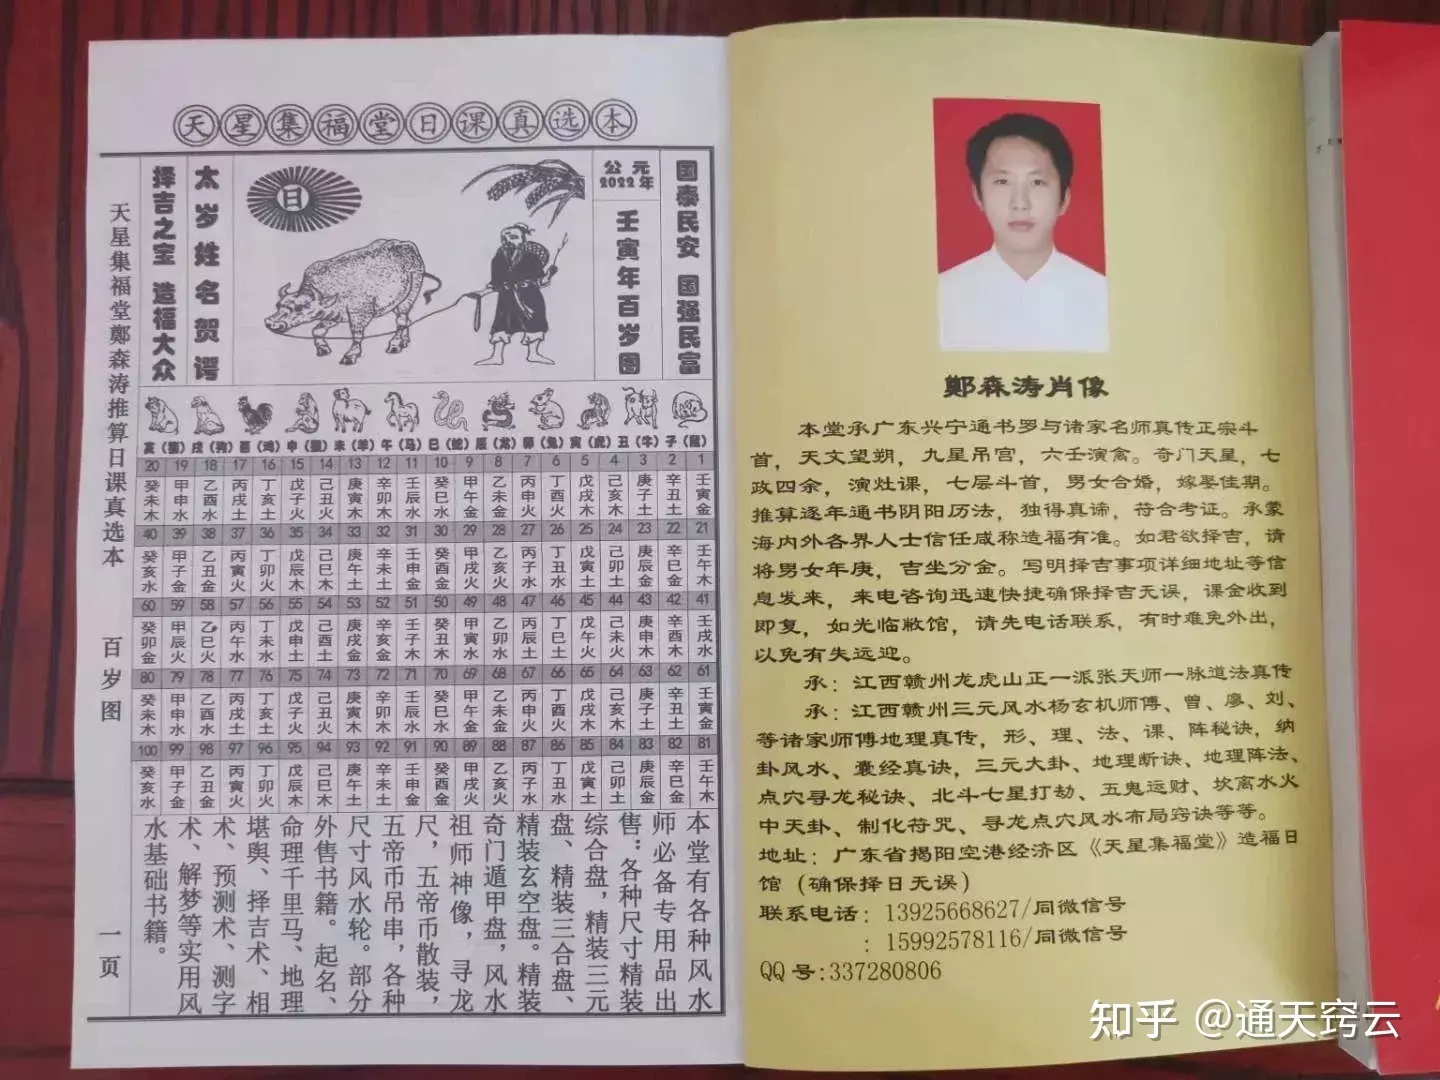 天星集福堂日课真选本
国泰民安 国强民富
公元2022年
壬寅年百岁图
日
太岁姓名贺谔
择吉之宝 造福大众
天星集福堂鄭森涛推算日课真选本 百岁图 一页
亥(猪) 戌(狗) 酉(鸡) 申(猴) 未(羊) 午(马) 巳(蛇) 辰(龙) 卯(兔) 寅(虎) 丑(牛) 子(鼠)
20 19 18 17 16 15 14 13 12 11 10 9 8 7 6 5 4 3 2 1
癸未木 甲申水 乙酉水 丙戌土 丁亥土 戊子火 己丑火 庚寅木 辛卯木 壬辰水 癸巳水 甲午金 乙未金 丙申火 丁酉火 戊戌木 己亥木 庚子土 辛丑土 壬寅金
40 39 38 37 36 35 34 33 32 31 30 29 28 27 26 25 24 23 22 21
癸亥水 甲子金 乙丑金 丙寅火 丁卯火 戊辰木 己巳木 庚午土 辛未土 壬申金 癸酉金 甲戌火 乙亥火 丙子水 丁丑水 戊寅土 己卯土 庚辰金 辛巳金 壬午木
60 59 58 57 56 55 54 53 52 51 50 49 48 47 46 45 44 43 42 41
癸卯金 甲辰火 乙巳火 丙午水 丁未水 戊申土 己酉土 庚戌金 辛亥金 壬子木 癸丑木 甲寅水 乙卯水 丙辰土 丁巳土 戊午火 己未火 庚申木 辛酉木 壬戌水
80 79 78 77 76 75 74 73 72 71 70 69 68 67 66 65 64 63 62 61
癸未木 甲申水 乙酉水 丙戌土 丁亥土 戊子火 己丑火 庚寅木 辛卯木 壬辰水 癸巳水 甲午金 乙未金 丙申火 丁酉火 戊戌木 己亥木 庚子土 辛丑土 壬寅金
100 99 98 97 96 95 94 93 92 91 90 89 88 87 86 85 84 83 82 81
癸亥水 甲子金 乙丑金 丙寅火 丁卯火 戊辰木 己巳木 庚午土 辛未土 壬申金 癸酉金 甲戌火 乙亥火 丙子水 丁丑水 戊寅土 己卯土 庚辰金 辛巳金 壬午木
本堂有各种风水
师必备专用品出
售：各种尺寸精装
综合盘，精装三元
盘、精装三合盘、
精装玄空盘。精装
奇门遁甲盘，风水
祖师神像，寻龙
尺，五帝币散装，
五帝币吊串，各种
尺寸风水轮。部分
外售书籍。起名、
命理千里马、地理
堪舆、择吉术、相
术、预测术、测字
术、解梦等实用风
水基础书籍。
鄭森涛肖像
本堂承广东兴宁通书罗与诸家名师真传正宗斗
首，天文望朔，九星吊宫，六壬演禽。奇门天星，七
政四余，演灶课，七层斗首，男女合婚，嫁娶佳期。
推算逐年通书阴阳历法，独得真谛，符合考证。承蒙
海内外各界人士信任咸称造福有准。如君欲择吉，请
将男女年庚，吉坐分金。写明择吉事项详细地址等信
息发来，来电咨询迅速快捷确保择吉无误，课金收到
即复，如光临敝馆，请先电话联系，有时难免外出，
以免有失远迎。
承：江西赣州龙虎山正一派张天师一脉道法真传
承：江西赣州三元风水杨玄机师傅、曾、廖、刘、
等诸家师傅地理真传，形、理、法、课、阵秘诀，纳
卦风水、囊经真诀，三元大卦、地理断诀、地理阵法、
点穴寻龙秘诀、北斗七星打劫、五鬼运财、坎离水火
中天卦、制化符咒、寻龙点穴风水布局窍诀等等。
地址：广东省揭阳空港经济区《天星集福堂》造福日
馆（确保择日无误）
联系电话：13925668627/同微信号
：15992578116/同微信号
QQ号:337280806
知乎 @通天窍云